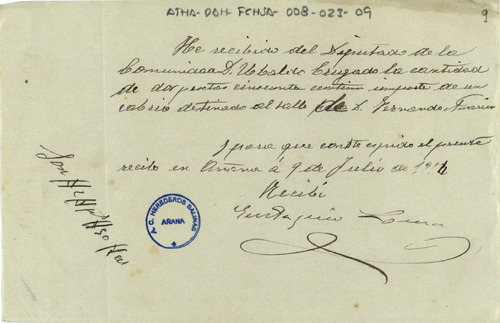 ATHA-DAH-FCHSA-008-023-09
9
He recibido del Diputado de la
Comunidad D. Ubaldo Cruzado la cantidad
de dos pesetas cincuenta centims importe de un
cabrio destinado al valle de D. Fernando
Y para que conste expido el presente
recibo en Añana á 9 de Julio de 191
Recibi
Eustaquio
Son
A. C. HEREDEROS SALINAS
AÑANA